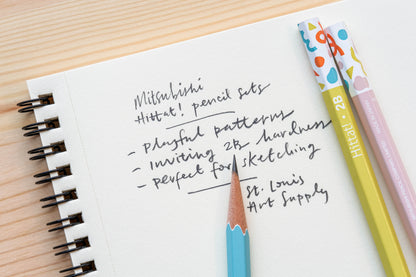 Mitsubishi
Hittat! pencil sets
- Playful patterns
- Inviting 2B hardness
- Perfect for sketching
St. Louis
Art Supply
Hittat! · 2B